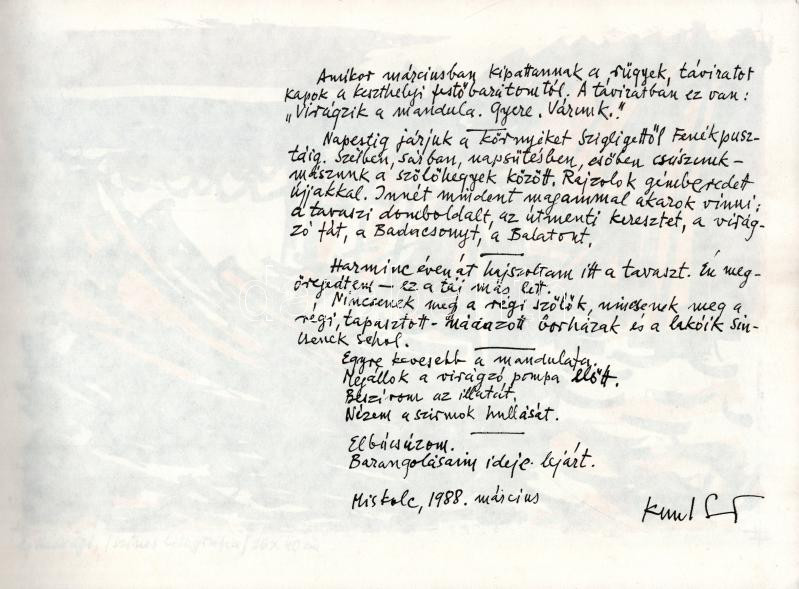 Amikor márciusban kipattannak a rügyek, táviratot
kapok a keszthelyi festőbarátomtól. A táviratban ez van:
„Virágzik a mandula. Gyere. Várunk."
Napestig járjuk a környéket Szigligettől Fenékpusz-
táig. Szélben, sárban, napsütésben, esőben csúszunk-
mászunk a szőlőhegyek között. Rajzolok gémberedett
ujjakkal. Innét mindent magammal akarok vinni:
a tavaszi domboldalt, az útmenti keresztet, a virág-
zó fát, a Badacsonyt, a Balatont.
Harminc éven át hajszoltam itt a tavaszt. Én meg-
öregedtem — ez a táj más lett.
Nincsenek meg a régi szőlők, nincsenek meg a
régi, tapasztott-mázazott borházak és a lakóik sin-
csenek sehol.
Egyre kevesebb a mandulafa.
Megállok a virágzó pompa előtt.
Beszívom az illatát.
Nézem a szirmok hullását.
Elbúcsúzom.
Barangolásaim ideje lejárt.
Miskolc, 1988. március